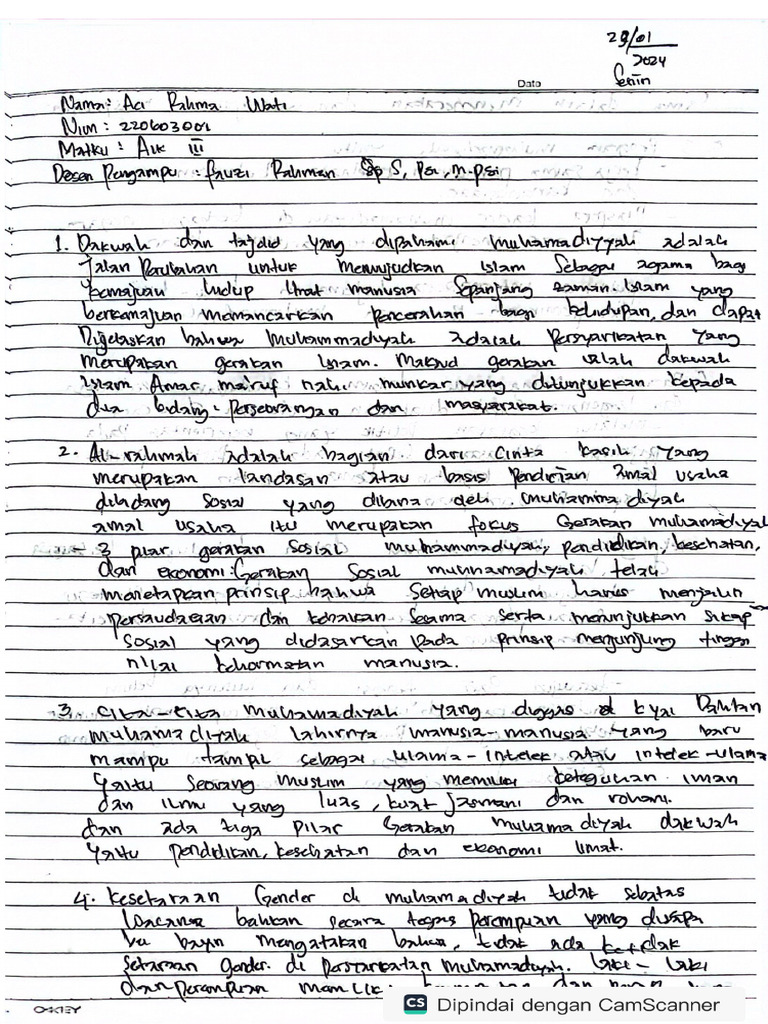 29/01
2024
Senin
Date
Nama: Aci Rahma Wati
Nim: 220603001
Matku: AIK III
Dosen Pengampu: fauzi Rahman S, Psi, M.psi
1. Dakwah dan tajdid yang dipahami muhamadiyyah adalah
Jalan Perubahan untuk mewujudkan islam Sebagai agama bagi
kemajuan hidup Umat manusia Sepanjang zaman. Islam yang
berkemajuan memancarkan pencerahan bagi kehidupan, dan dapat
Dijelaskan bahwa Muhammadiyah adalah Persyarikatan yang
merupakan gerakan Islam. Maksud gerakan ialah dakwah
islam Amar ma'ruf nahi munkar yang ditunjukkan kepada
dua bidang: Perseorangan dan masyarakat.
2. Al-rahmah adalah bagian dari cinta kasih yang
merupakan landasan atau basis Pendirian amal usaha
dibidang Sosial yang dibina oleh muhammadiyah
amal usaha itu merupakan fokus Gerakan muhamadiyah
- 3 pilar gerakan Sosial muhammadiyah, pendidikan, kesehatan,
dan ekonomi. Gerakan Sosial muhamadiyah telah
menetapkan prinsip bahwa Setiap muslim harus menjalin
persaudaraan dan kebaikan Sesama serta menunjukkan sikap
Sosial yang didasarkan pada prinsip menjunjung tinggi
nilai kehormatan manusia.
3. Cita-cita muhamadiyah yang digagas kyai Dahlan
muhamadiyah lahirnya manusia-manusia yang baru
mampu tampil sebagai ulama-intelek atau intelek-ulama
Yaitu Seorang Muslim yang memiliki keteguhan iman
dan ilmu yang luas, kuat jasmani dan rohani.
dan ada tiga pilar Gerakan muhamadiyah dakwah
Yaitu Pendidikan, kesehatan dan ekonomi umat.
4. kesetaraan Gender di muhamadiyah tidak sebatas
wacana bahkan secara tegas perempuan yang disapa
bu bayin mengatakan bahwa, tidak ada ketidak
Setaraan gender. di Persyarikatan Muhamadiyah. laki-laki
dan perempuan memiliki
OAKLEY
CS Dipindai dengan CamScanner